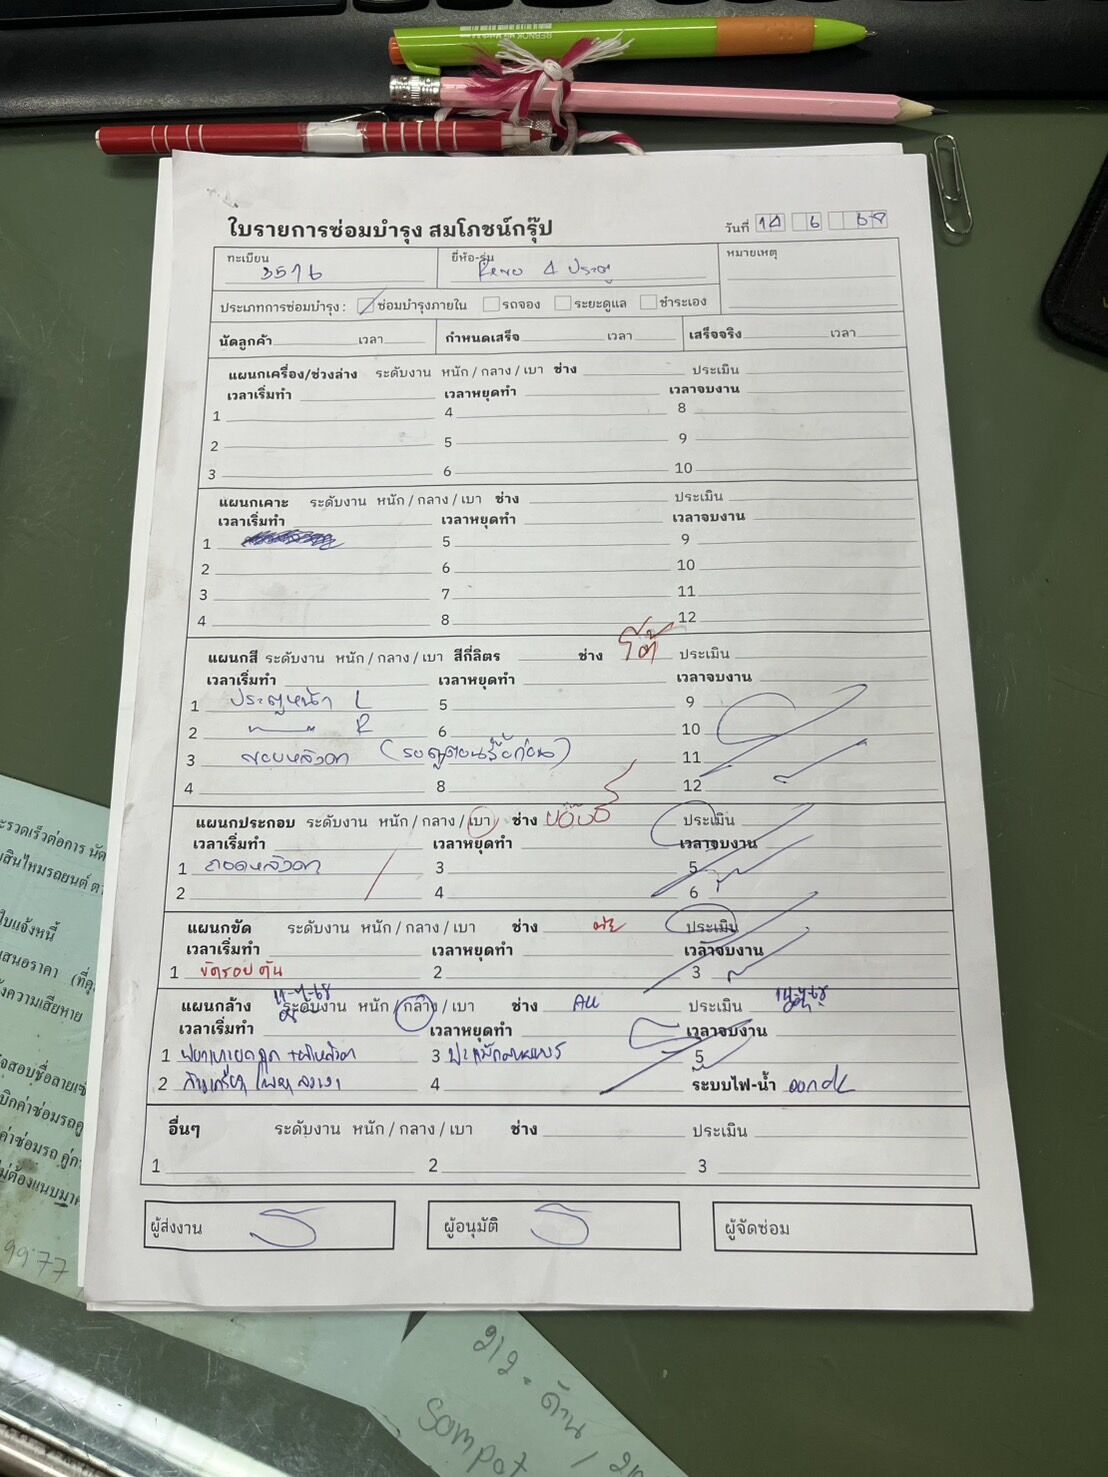 ใบรายการซ่อมบำรุง สมโภชน์กรุ๊ป
วันที่ 14 6 68
ทะเบียน 3516
ยี่ห้อ-รุ่น Revo 4 ประตู
หมายเหตุ
ประเภทการซ่อมบำรุง : ซ่อมบำรุงภายใน รถจอง ระยะดูแล ชำระเอง
นัดลูกค้า เวลา กำหนดเสร็จ เวลา เสร็จจริง เวลา
แผนกเครื่อง/ช่วงล่าง ระดับงาน หนัก / กลาง / เบา ช่าง ประเมิน
เวลาเริ่มทำ เวลาหยุดทำ เวลาจบงาน
1 4 8
2 5 9
3 6 10
แผนกเคาะ ระดับงาน หนัก / กลาง / เบา ช่าง ประเมิน
เวลาเริ่มทำ เวลาหยุดทำ เวลาจบงาน
1 5 9
2 6 10
3 7 11
4 8 12
แผนกสี ระดับงาน หนัก / กลาง / เบา สีกี่ลิตร ช่าง โต้ ประเมิน
เวลาเริ่มทำ เวลาหยุดทำ เวลาจบงาน
1 ประตูหน้า L 5 9
2 R 6 10
3 ขอบหลังคา 11
4 8 12
แผนกประกอบ ระดับงาน หนัก / กลาง / เบา ช่าง ประเมิน
เวลาเริ่มทำ เวลาหยุดทำ เวลาจบงาน
1 ถอดหลังคา 3 5
2 4 6
แผนกขัด ระดับงาน หนัก / กลาง / เบา ช่าง ประเมิน
เวลาเริ่มทำ เวลาหยุดทำ เวลาจบงาน
1 ขัดรอบคัน 2 3
แผนกล้าง ระดับงาน หนัก / กลาง / เบา ช่าง ประเมิน
เวลาเริ่มทำ เวลาหยุดทำ เวลาจบงาน
1 3 5
2 4 ระบบไฟ-น้ำ ok
อื่นๆ ระดับงาน หนัก / กลาง / เบา ช่าง ประเมิน
1 2 3
ผู้ส่งงาน ผู้อนุมัติ ผู้จัดซ่อม
9977
212. ด้าน /
Sompot